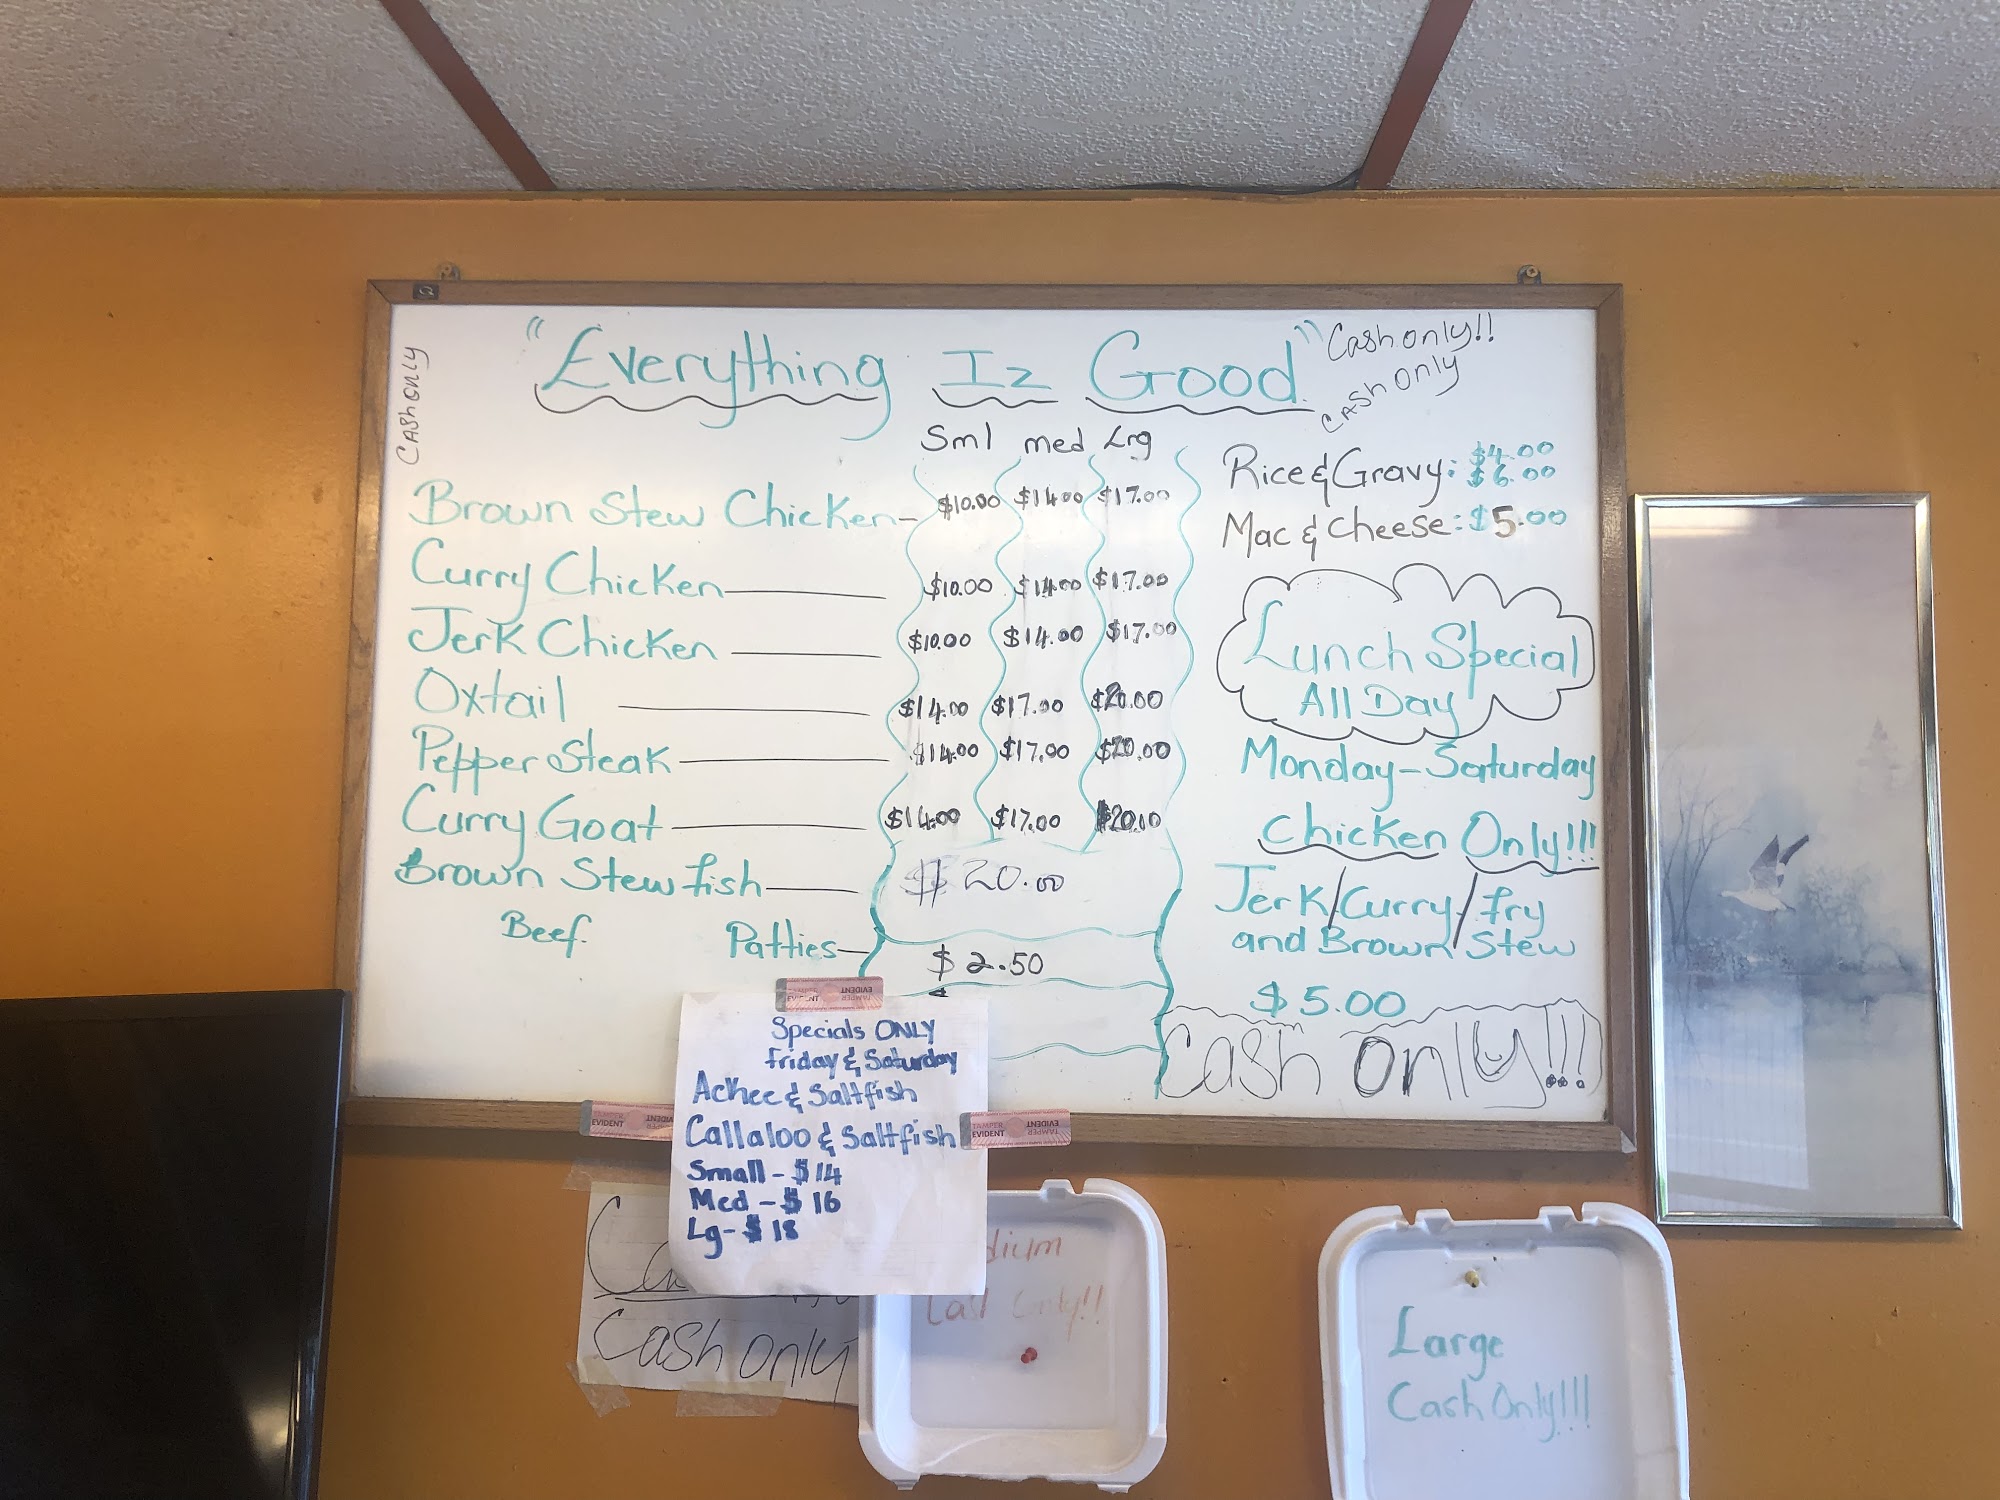 "Everything Iz Good"
Cash only!!
Cash only
Cash only
Sml med Lrg
Brown Stew Chicken- $10.00 $14.00 $17.00
Curry Chicken $10.00 $14.00 $17.00
Jerk Chicken $10.00 $14.00 $17.00
Oxtail $14.00 $17.00 $20.00
Pepper Steak $14.00 $17.00 $20.00
Curry Goat $14.00 $17.00 $20.00
Brown Stew fish $20.00
Beef. Patties $2.50
Rice & Gravy: $4.00
$6.00
Mac & Cheese: $5.00
Lunch Special
All Day
Monday-Saturday
Chicken Only!!!
Jerk/Curry/fry
and Brown Stew
$5.00
Cash only!!!
Specials ONLY
friday & Saturday
Ackee & Saltfish
Callaloo & Saltfish
Small - $14
Med - $16
Lg - $18
TAMPER EVIDENT
EVIDENT
TAMPER EVIDENT
Cash only
dium
Only!!
Large
Cash Only!!!